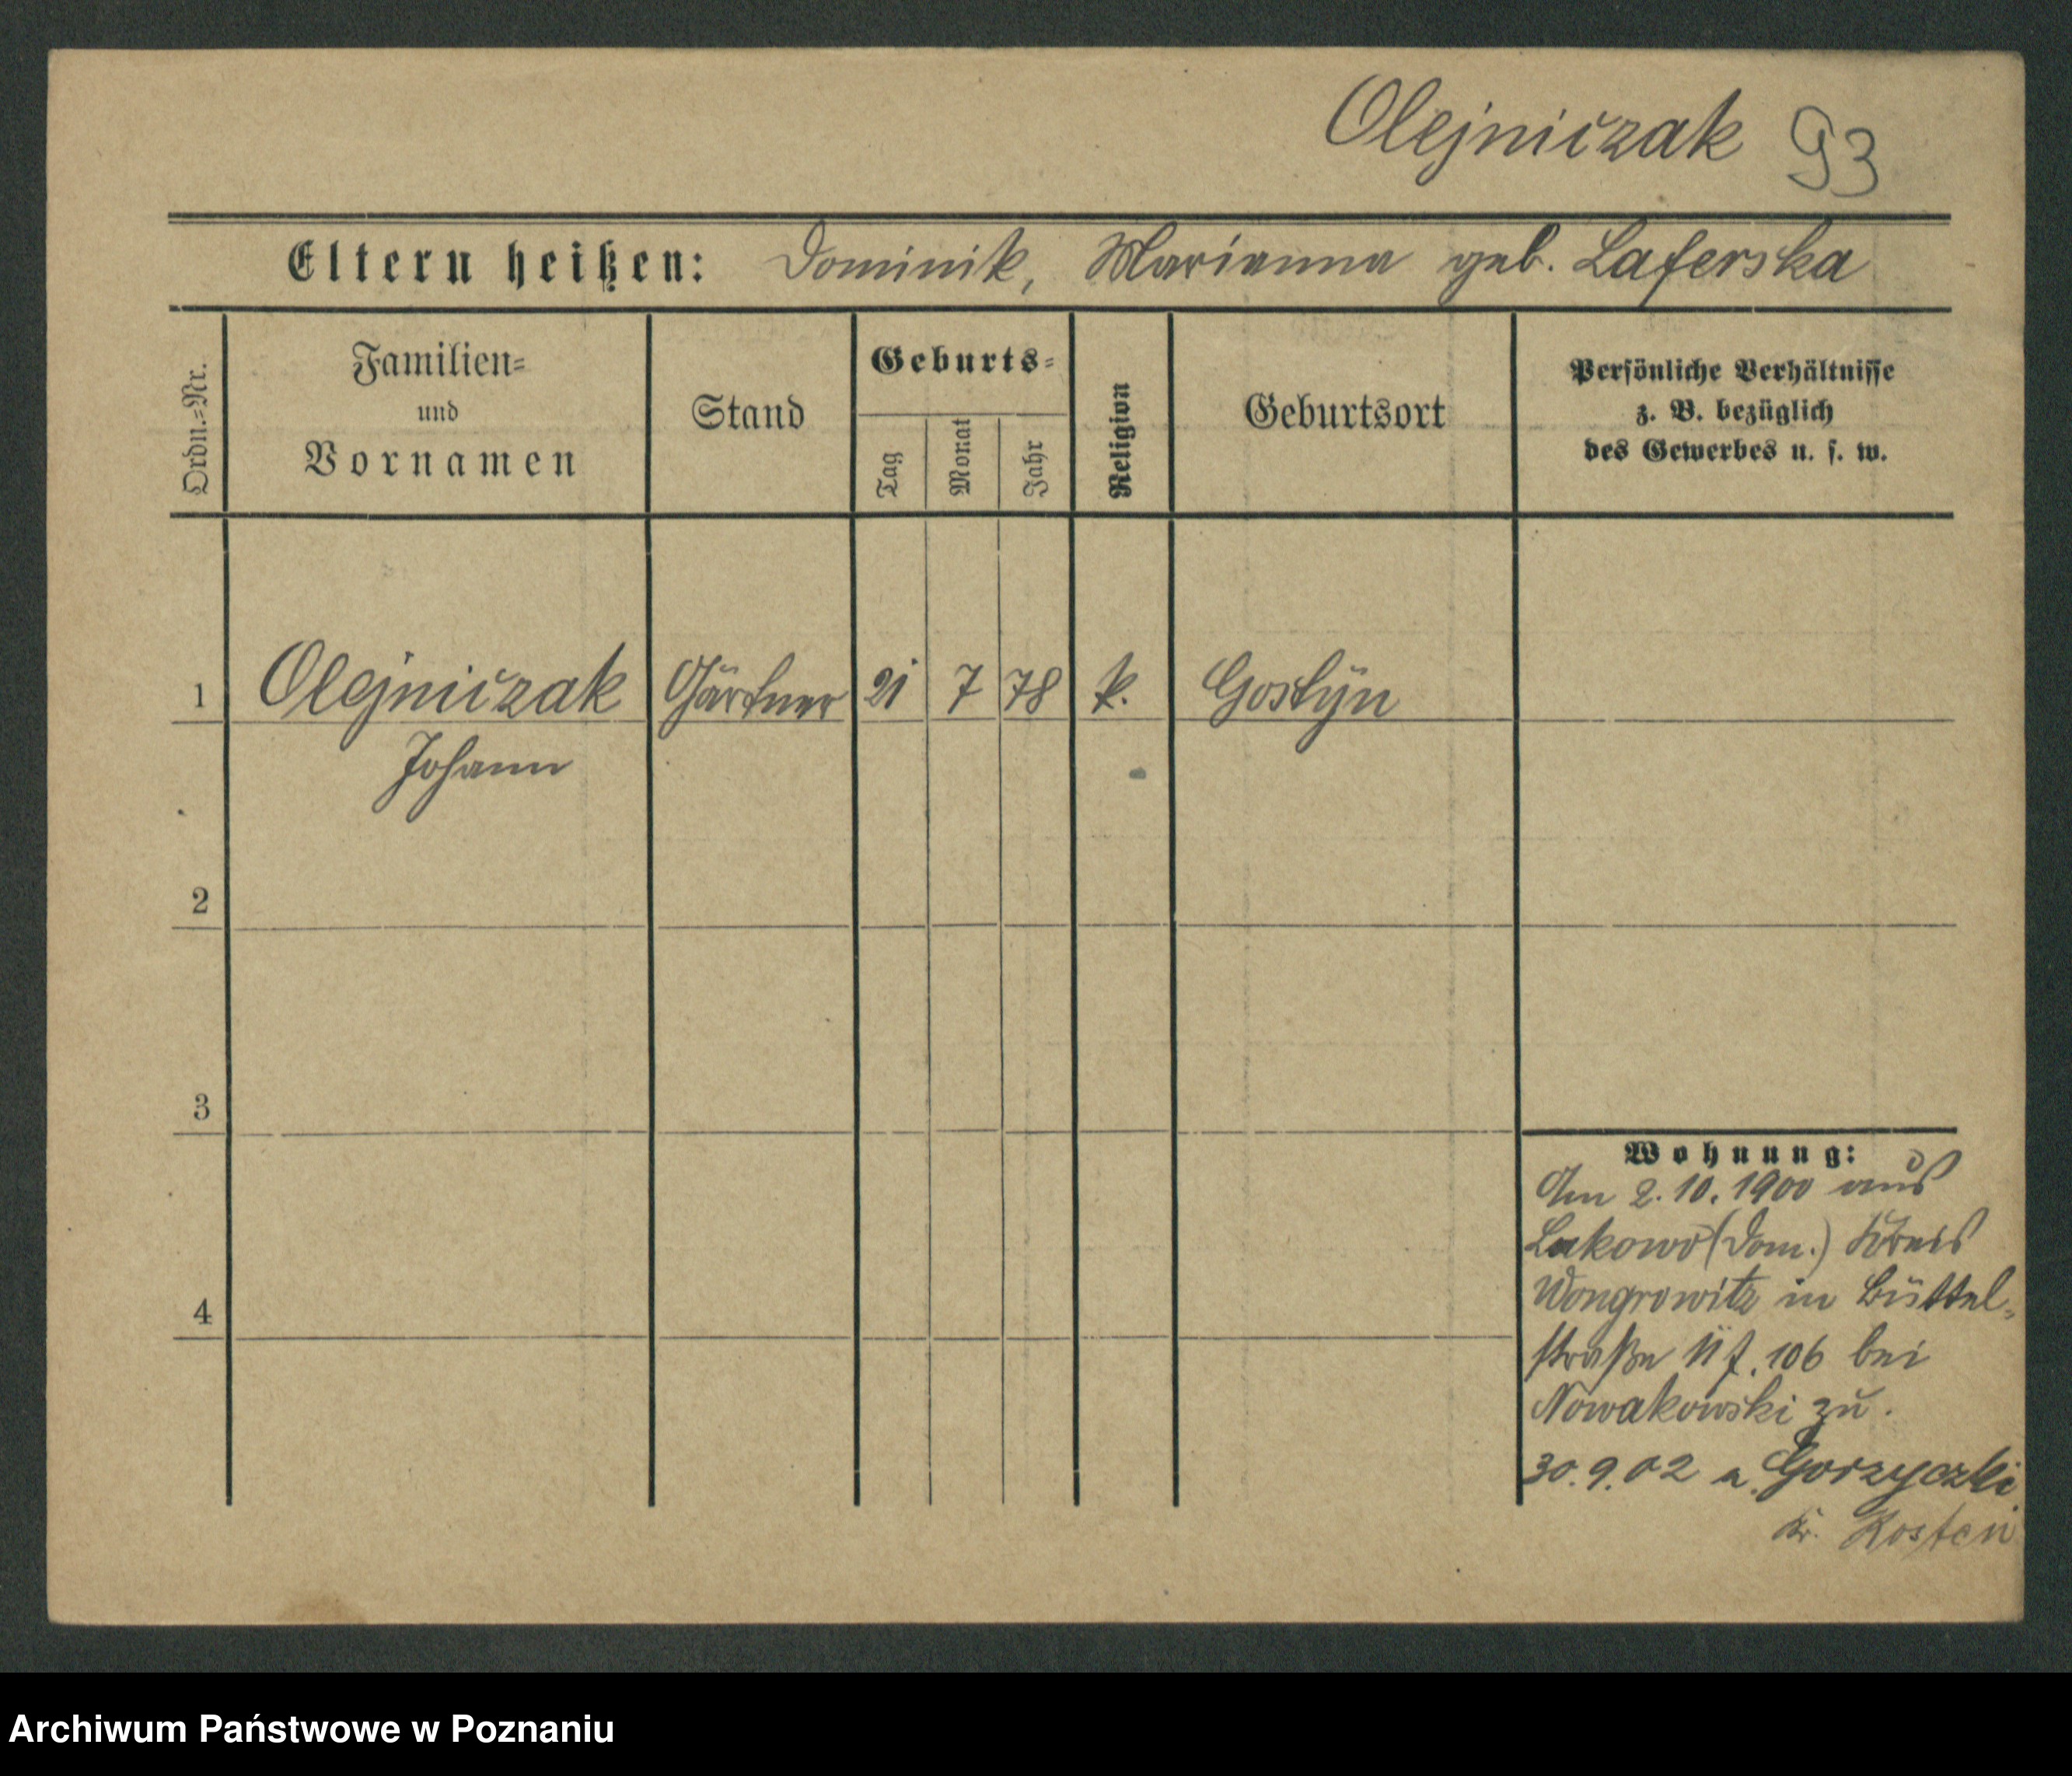 Olejniczak 93
Eltern heißen: Dominik, Marianna geb. Laferska
Ordn.=Nr.
Familien=
und
Vornamen
Stand
Geburts=
Tag
Monat
Jahr
Religion
Geburtsort
Persönliche Verhältnisse
z. B. bezüglich
des Gewerbes u. s. w.
1 Olejniczak Gärtner 21 7 78 k. Gostyn
Johann
2
3
4
Wohnung:
Am 2.10.1900 aus
Lukowo (Dom.) Kreis
Wongrowitz in Büttel-
straße 11 f. 106 bei
Nowakowski zu.
30.9.02 n. Gorzyczki
Kr. Kosten
Archiwum Państwowe w Poznaniu